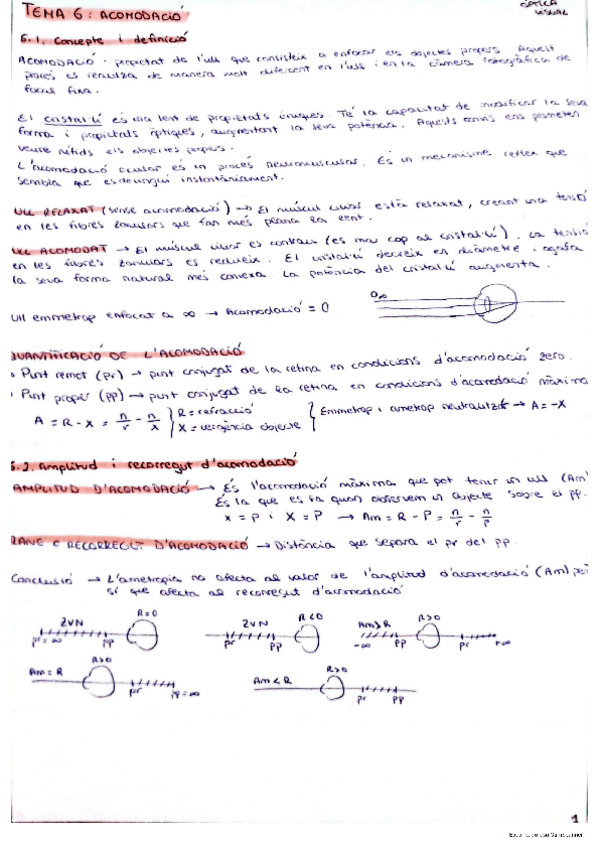 TEMA 6: ACOMODACIÓ
ÒPTICA
VISUAL
6.1. Concepte i definició
ACOMODACIÓ: propietat de l'ull que consisteix a enfocar els objectes propers. Aquest
procés es realitza de manera molt diferent en l'ull i en la càmera fotogràfica de
focal fixa.
El cristal·lí és una lent de propietats úniques. Té la capacitat de modificar la seva
forma i propietats òptiques, augmentant la seva potència. Aquests canvis ens permeten
veure nítids els objectes propers.
L'acomodació ocular és un procés neuromuscular. És un mecanisme reflex que
sembla que esdevingui instantàniament.
ULL RELAXAT (sense acomodació) → El múscul ciliar està relaxat, creant una tensió
en les fibres zonulars que fan més plana la lent.
ULL ACOMODAT → El múscul ciliar es contrau (es mou cap al cristal·lí). La tensió
en les fibres zonulars es redueix. El cristal·lí decreix en diàmetre i agafa
la seva forma natural més convexa. La potència del cristal·lí augmenta.
Ull emmetrop enfocat a ∞ → Acomodació = 0
O∞
QUANTIFICACIÓ DE L'ACOMODACIÓ
• Punt remot (pr) → punt conjugat de la retina en condicions d'acomodació zero.
• Punt proper (pp) → punt conjugat de la retina en condicions d'acomodació màxima
A = R - X = n/r - n/x } R = refracció X = vergència objecte } Emmetrop i ametrop neutralitzat → A = -X
6.2. Amplitud i recorregut d'acomodació
AMPLITUD D'ACOMODACIÓ → És l'acomodació màxima que pot tenir un ull (Am)
És la que es fa quan observem un objecte sobre el pp.
x = p i X = P → Am = R - P = n/r - n/p
RANG O RECORREGUT D'ACOMODACIÓ → Distància que separa el pr del pp.
Conclusió → L'ametropia no afecta al valor de l'amplitud d'acomodació (Am) però
sí que afecta al recorregut d'acomodació
ZVN R=0 pr=∞ pp
ZVN R<0 pr pp
Am>R R>0 -∞ pp pr +∞
Am=R R>0 pr pp=∞
Am<R R>0 pr pp
1